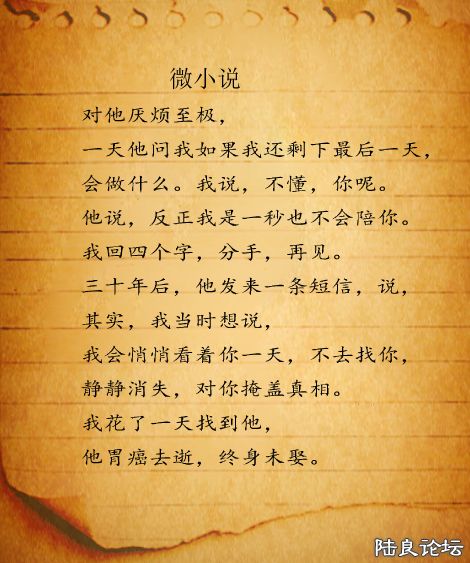 微小说
对他厌烦至极，
一天他问我如果我还剩下最后一天，
会做什么。我说，不懂，你呢。
他说，反正我是一秒也不会陪你。
我回四个字，分手，再见。
三十年后，他发来一条短信，说，
其实，我当时想说，
我会悄悄看着你一天，不去找你，
静静消失，对你掩盖真相。
我花了一天找到他，
他胃癌去逝，终身未娶。
陆良论坛